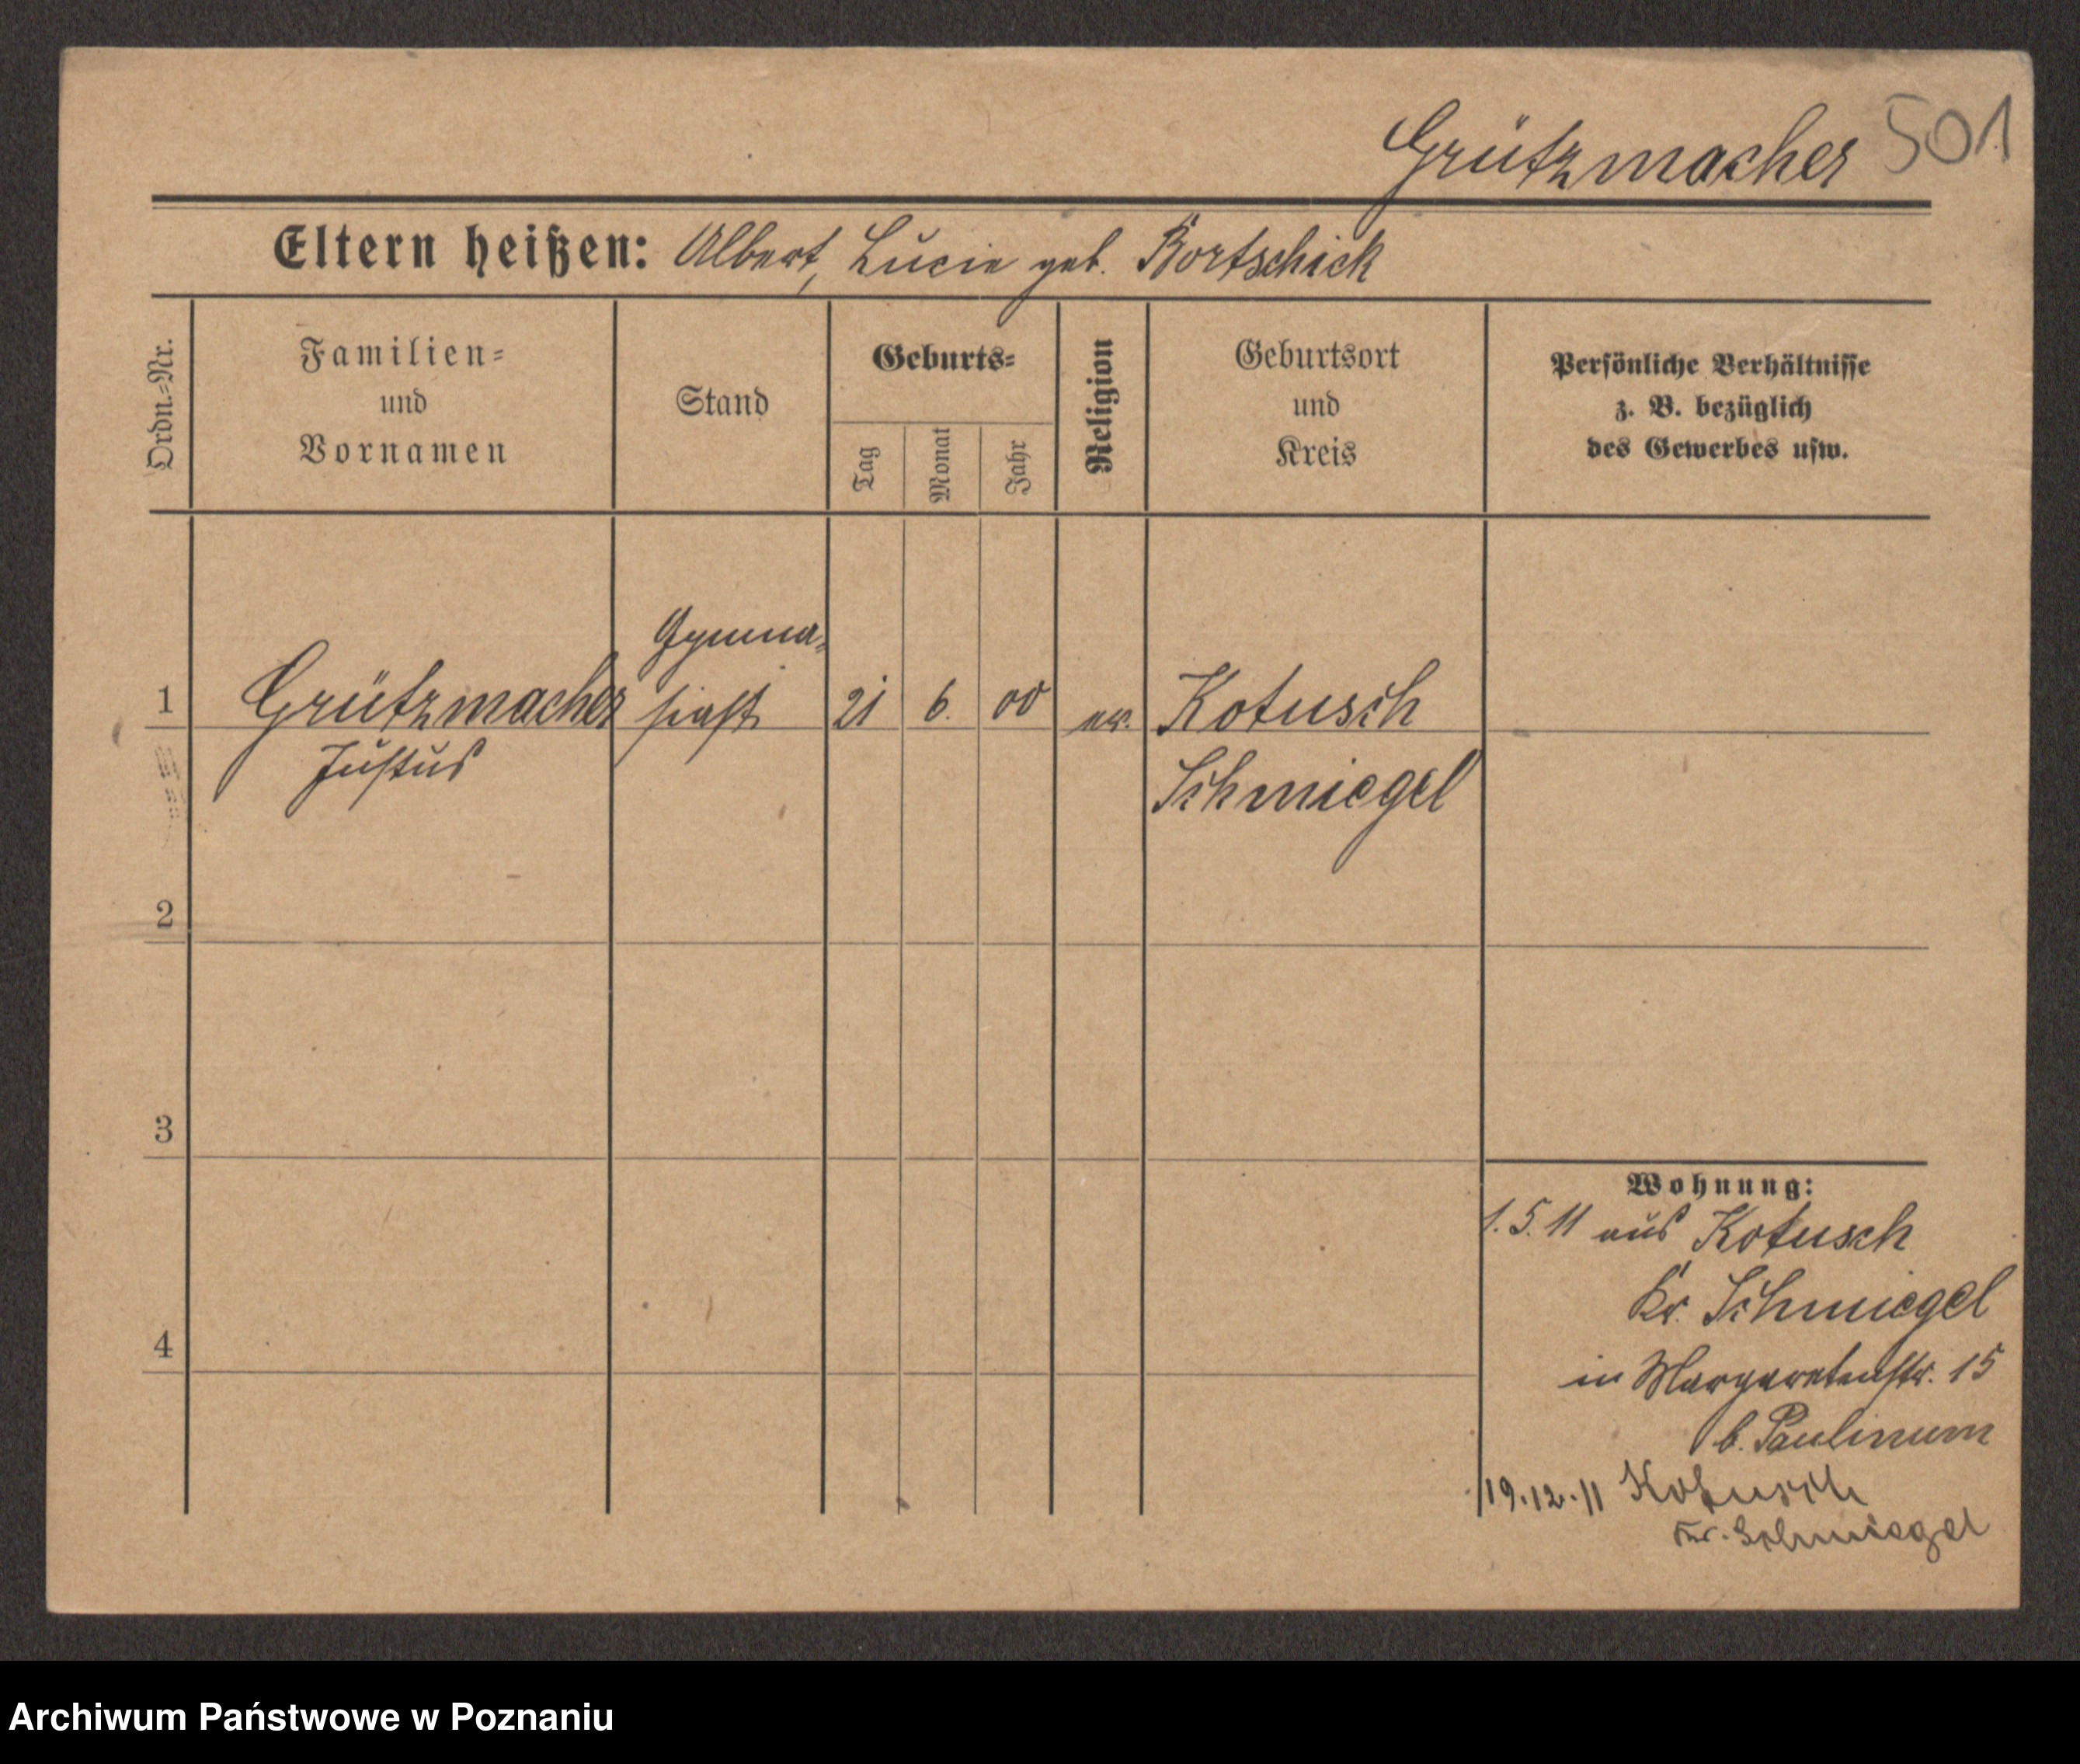 Grützmacher 501
Eltern heißen: Albert, Lucie geb. Bortschick
Ordn.=Nr.
Familien=
und
Vornamen
Stand
Geburts=
Tag
Monat
Jahr
Religion
Geburtsort
und
Kreis
Persönliche Verhältnisse
z. B. bezüglich
des Gewerbes usw.
Gymna=
1 Grützmacher siast 21 6. 00 ev. Kotusch
Justus Schmiegel
2
3
4
Wohnung:
1. 5. 11 aus Kotusch
Kr. Schmiegel
in Margaretenstr. 15
b. Paulinum
19.12.11 Kotusch
Kr. Schmiegel
Archiwum Państwowe w Poznaniu